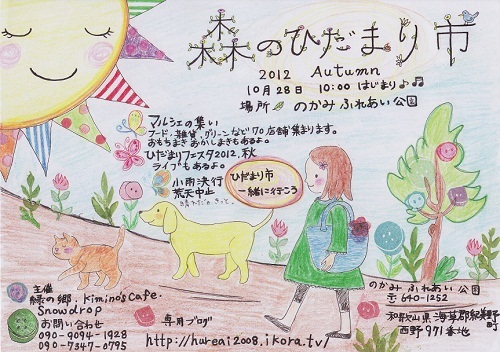 森のひだまり市
2012 Autumn
10月28日 10:00 はじまり♪♫
場所 のかみふれあい公園
マルシェの集い
フード、雑貨、グリーンなど170店舗集まります。
おもちまき おかしまきもあるよ。
ひだまりフェスタ2012.秋
ライブもあるよ。
小雨決行
荒天中止
晴れだね きっと。
ひだまり市
一緒に行こう
主催
緑の郷.Kimino's Cafe.
Snowdrop
お問い合わせ
090-9094-1928
090-7347-0795
専用ブログ
http://hureai2008.ikora.tv/
のかみふれあい公園
〒640-1252
和歌山県海草郡紀美野町
西野971番地